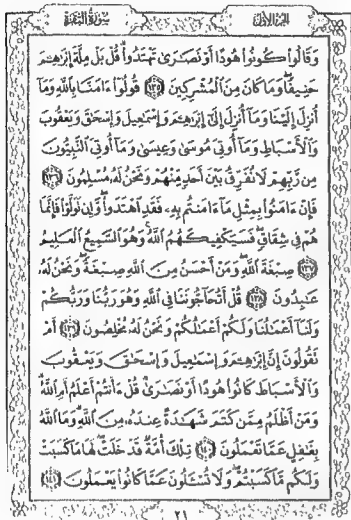 الجزء الأول
سورة البقرة
وَقَالُوا كُونُوا هُودًا أَوْ نَصَارَىٰ تَهْتَدُوا قُلْ بَلْ مِلَّةَ إِبْرَاهِيمَ
حَنِيفًا وَمَا كَانَ مِنَ الْمُشْرِكِينَ ١٣٥ قُولُوا ءَامَنَّا بِاللَّهِ وَمَا
أُنزِلَ إِلَيْنَا وَمَا أُنزِلَ إِلَىٰ إِبْرَاهِيمَ وَإِسْمَاعِيلَ وَإِسْحَاقَ وَيَعْقُوبَ
وَالْأَسْبَاطِ وَمَا أُوتِيَ مُوسَىٰ وَعِيسَىٰ وَمَا أُوتِيَ النَّبِيُّونَ
مِن رَّبِّهِمْ لَا نُفَرِّقُ بَيْنَ أَحَدٍ مِّنْهُمْ وَنَحْنُ لَهُ مُسْلِمُونَ ١٣٦
فَإِنْ ءَامَنُوا بِمِثْلِ مَا ءَامَنتُم بِهِ فَقَدِ اهْتَدَوا وَّإِن تَوَلَّوْا فَإِنَّمَا
هُمْ فِي شِقَاقٍ فَسَيَكْفِيكَهُمُ اللَّهُ وَهُوَ السَّمِيعُ الْعَلِيمُ
١٣٧ صِبْغَةَ اللَّهِ وَمَنْ أَحْسَنُ مِنَ اللَّهِ صِبْغَةً وَنَحْنُ لَهُ
عَابِدُونَ ١٣٨ قُلْ أَتُحَاجُّونَنَا فِي اللَّهِ وَهُوَ رَبُّنَا وَرَبُّكُمْ
وَلَنَا أَعْمَالُنَا وَلَكُمْ أَعْمَالُكُمْ وَنَحْنُ لَهُ مُخْلِصُونَ ١٣٩ أَمْ
تَقُولُونَ إِنَّ إِبْرَاهِيمَ وَإِسْمَاعِيلَ وَإِسْحَاقَ وَيَعْقُوبَ
وَالْأَسْبَاطَ كَانُوا هُودًا أَوْ نَصَارَىٰ قُلْ ءَأَنتُمْ أَعْلَمُ أَمِ اللَّهُ
وَمَنْ أَظْلَمُ مِمَّن كَتَمَ شَهَادَةً عِندَهُ مِنَ اللَّهِ وَمَا اللَّهُ
بِغَافِلٍ عَمَّا تَعْمَلُونَ ١٤٠ تِلْكَ أُمَّةٌ قَدْ خَلَتْ لَهَا مَا كَسَبَتْ
وَلَكُم مَّا كَسَبْتُمْ وَلَا تُسْأَلُونَ عَمَّا كَانُوا يَعْمَلُونَ ١٤١
٢١